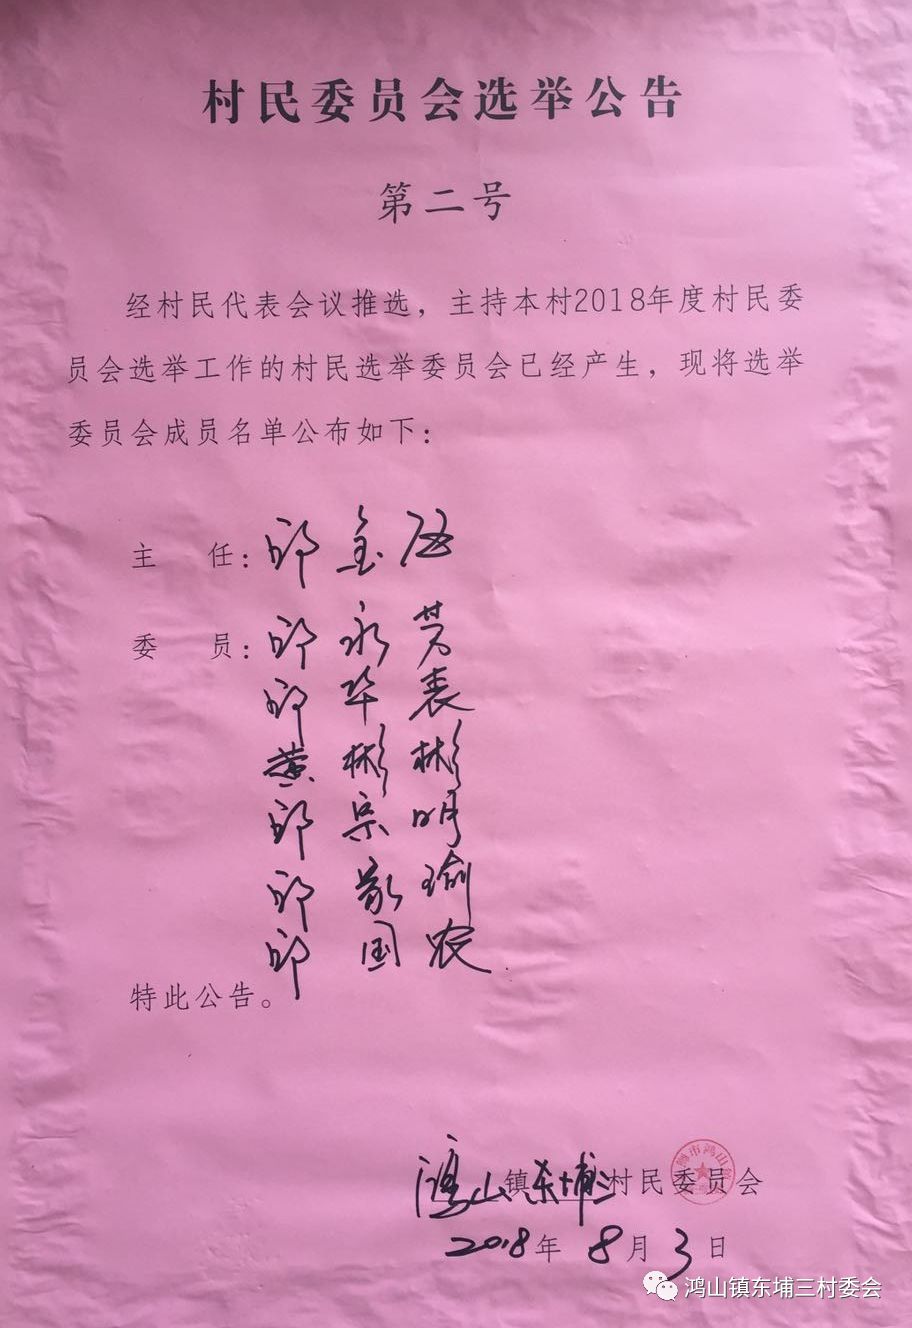 村民委员会选举公告
第二号
经村民代表会议推选，主持本村2018年度村民委
员会选举工作的村民选举委员会已经产生，现将选举
委员会成员名单公布如下：
主 任：邱金伍
委 员：邱永芳
邱华表
黄彬彬
邱宗明
邱家瑜
邱国农
特此公告。
鸿山镇东埔三村民委员会
2018年8月3日
鸿山镇东埔三村委会